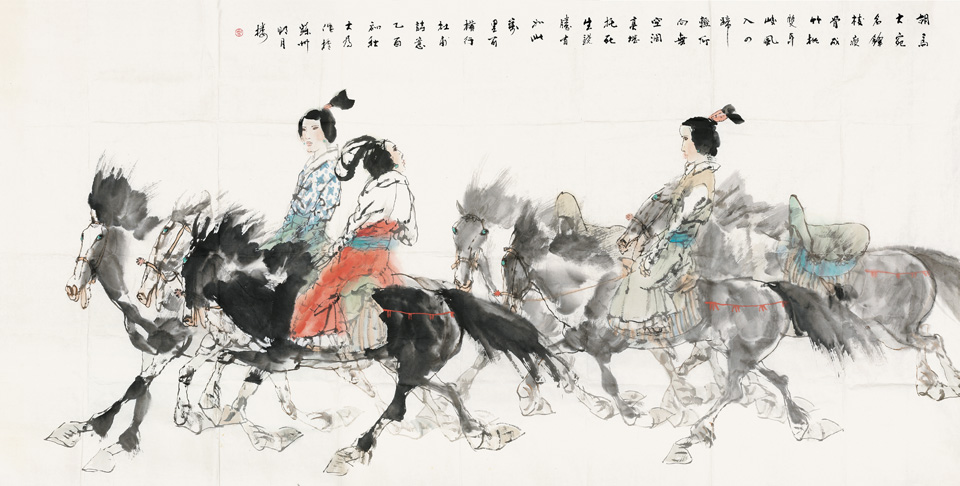 胡馬
大宛
名鋒
棱瘦
骨成
竹批
雙耳
峻風
入四
蹄
輕所
向無
空闊
真堪
托死
生驍
騰有
如此
萬
里可
橫行
杜甫
詩意
乙酉
初秋
大為
作於
蘇州
明月
樓